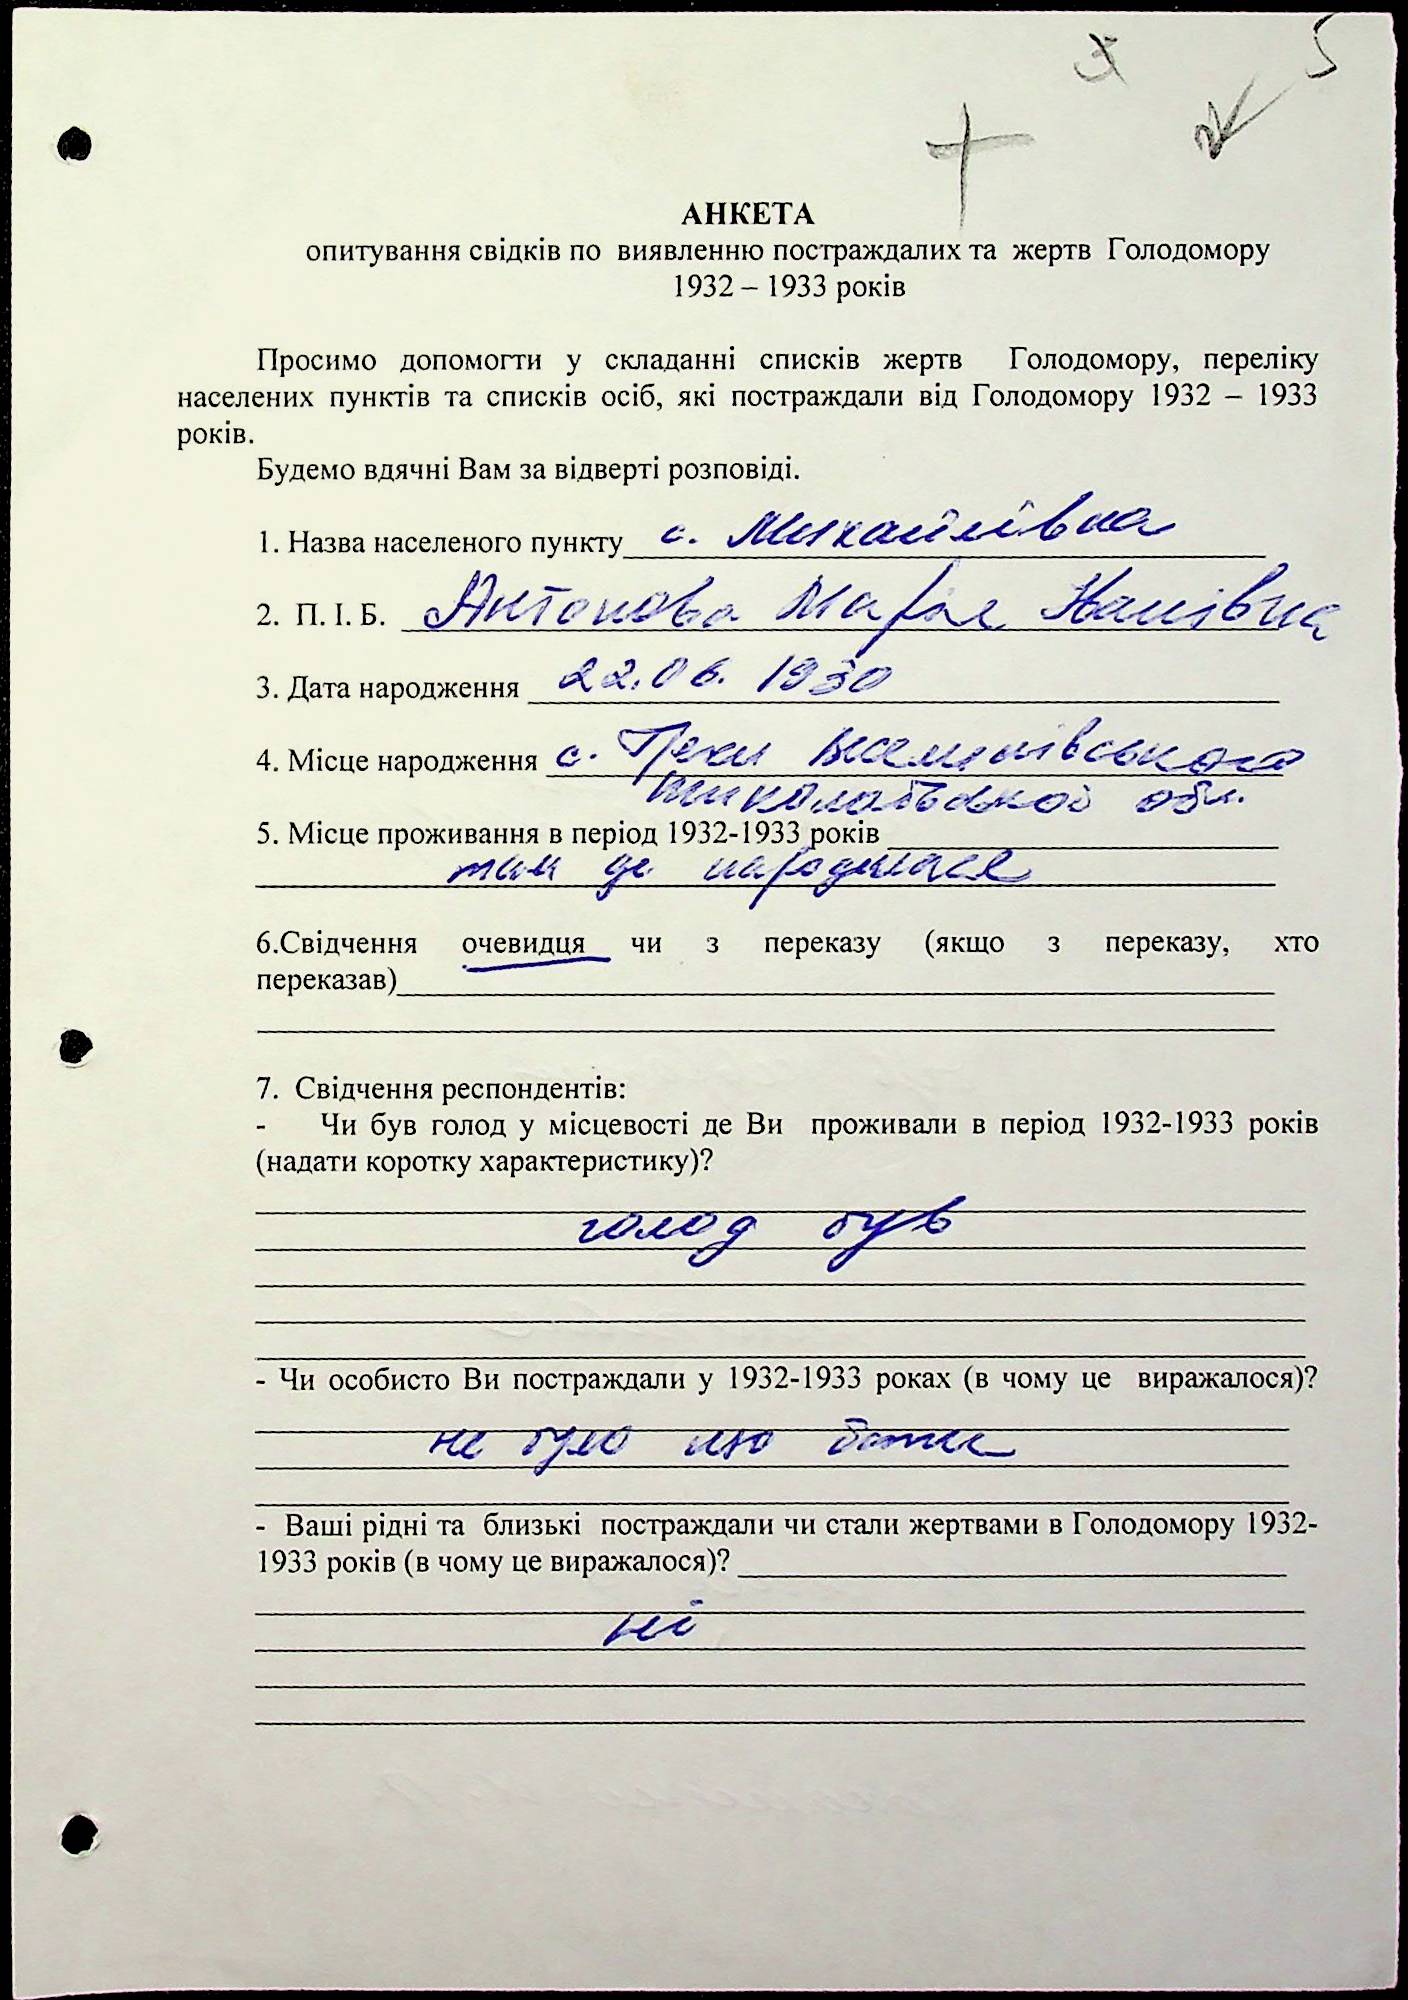 5
АНКЕТА
опитування свідків по виявленню постраждалих та жертв Голодомору
1932 – 1933 років
Просимо допомогти у складанні списків жертв Голодомору, переліку
населених пунктів та списків осіб, які постраждали від Голодомору 1932 – 1933
років.
Будемо вдячні Вам за відверті розповіді.
1. Назва населеного пункту с. Михайлівка
2. П. І. Б. Антонова Марія
3. Дата народження 22.06.1930
4. Місце народження с.
обл.
5. Місце проживання в період 1932-1933 років
там де народилася
6.Свідчення очевидця чи з переказу (якщо з переказу, хто
переказав)
7. Свідчення респондентів:
- Чи був голод у місцевості де Ви проживали в період 1932-1933 років
(надати коротку характеристику)?
голод був
- Чи особисто Ви постраждали у 1932-1933 роках (в чому це виражалося)?
не було що
- Ваші рідні та близькі постраждали чи стали жертвами в Голодомору 1932-
1933 років (в чому це виражалося)?
ні